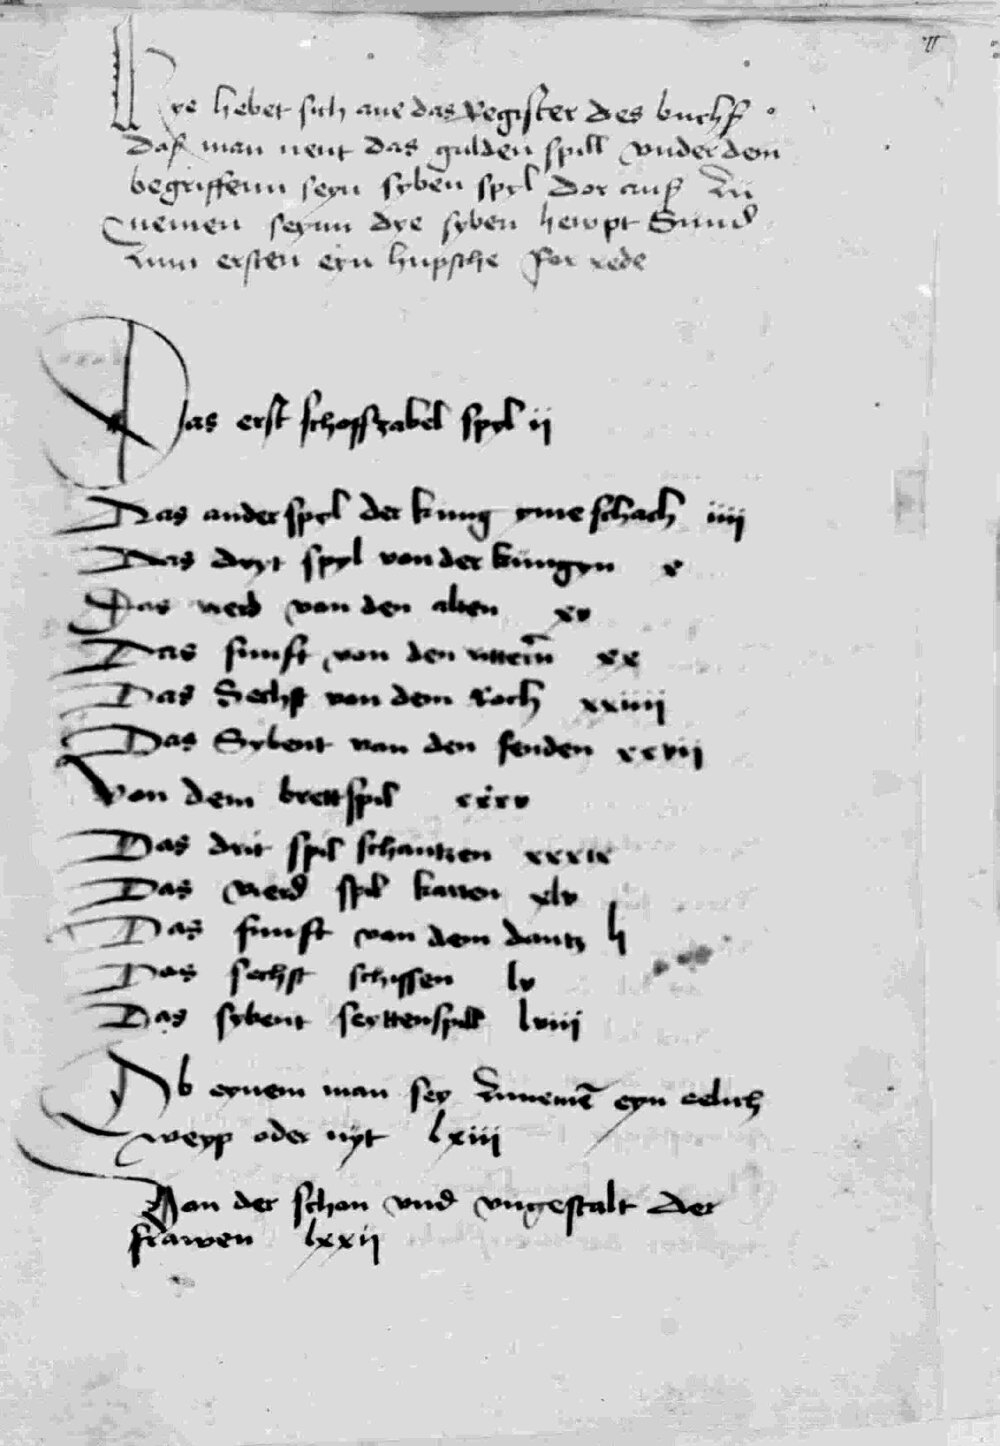 Hye hebet sich ane das Register des buchß
daß man nent das gulden spill vnder dem
begriffenn seyn syben spyl dor auß zu
nemen seynn dye syben hewpt Sund
zum ersten eyn hupsche for rede
Das erst schoffzabel spyl ii
Das ander spyl der kunng yme schach iiii
Das dryt spyl von der kungyn x
Das vierd von den alten xv
Das funft von den rittern xx
Das Sechst von dem roch xxiiii
Das Sybent von den fenden xxvii
Von dem brettspil xxxv
Das drit spil schantzen xxxix
Das vierd spil karten xlv
Das funft von dem dantz li
Das sechst schissen lv
Das sybent seyttenspill lviii
Ob eynem man sey zunemē eyn eelich
weyp oder nyt lxiii
Von der schon vnd vngestalt der
frawen lxxii